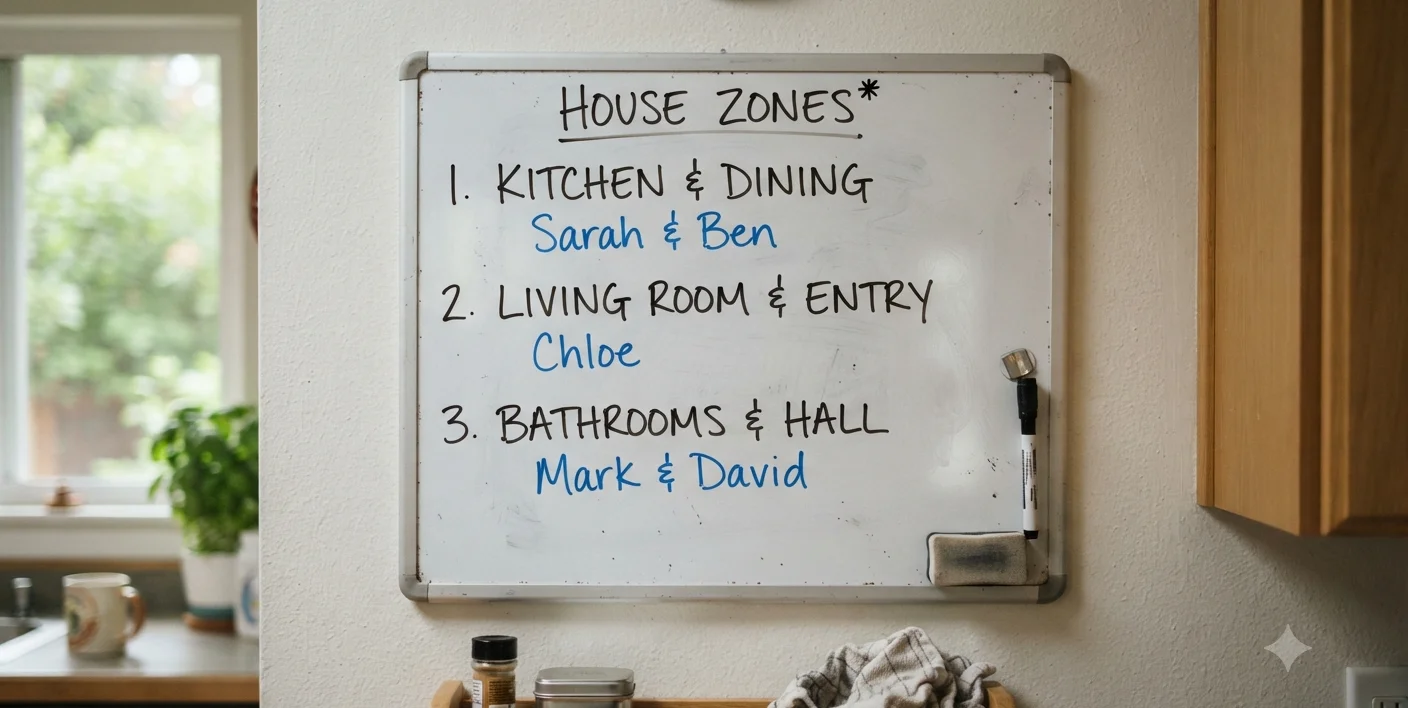 HOUSE ZONES*
1. KITCHEN & DINING
Sarah & Ben
2. LIVING ROOM & ENTRY
Chloe
3. BATHROOMS & HALL
Mark & David